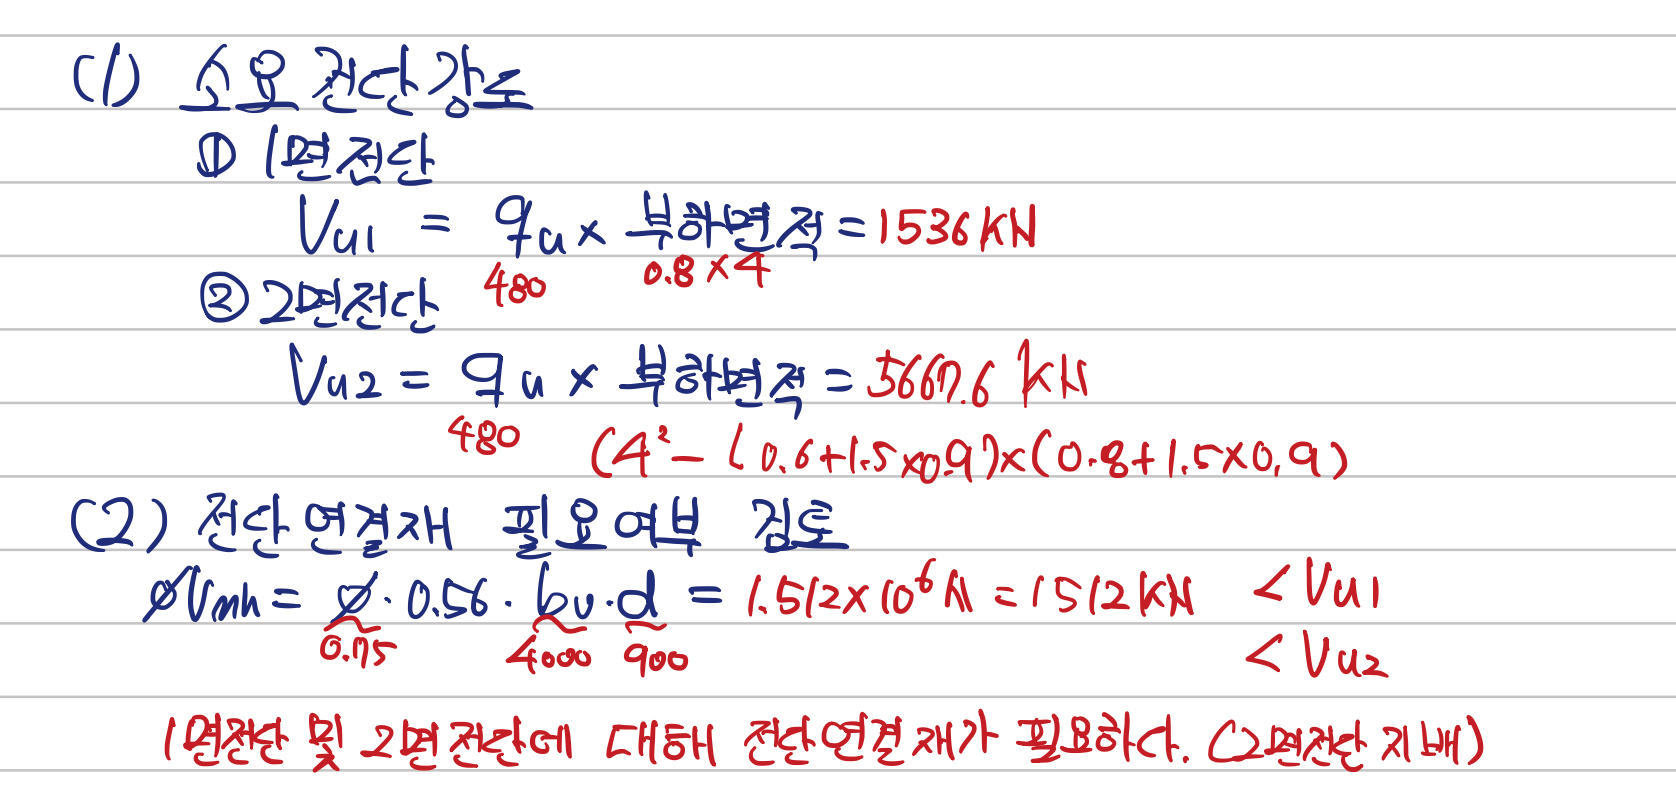 (1) 소요 전단강도
① 1면전단
Vu1 = qu × 부하면적 = 1536 kN
480 0.8 × 4
② 2면전단
Vu2 = qu × 부하면적 = 5667.6 kN
480 (4² - (0.6+1.5×0.9)×(0.8+1.5×0.9)
(2) 전단연결재 필요여부 검토
ØVnh = Ø·0.56·bv·d = 1.512×10⁶N = 1512kN < Vu1
0.75 4000 900 < Vu2
1면전단 및 2면전단에 대해 전단연결재가 필요하다. (2면전단 지배)